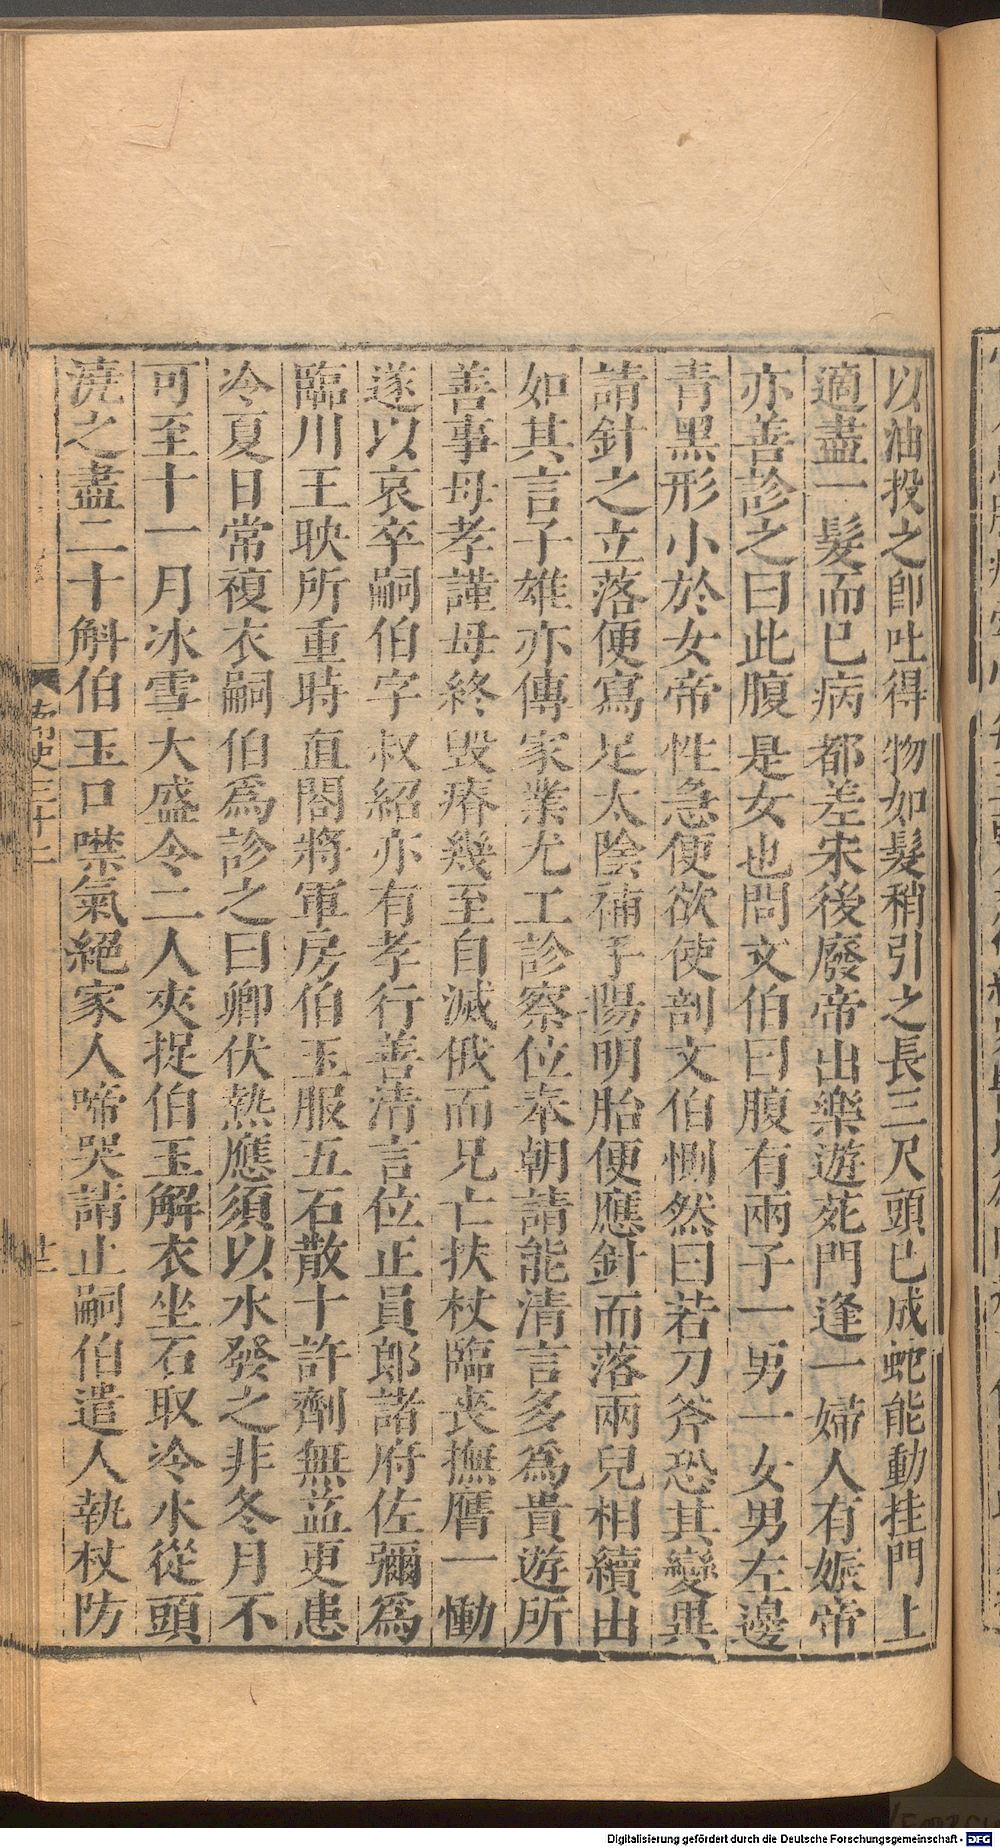 以油投之卽吐得物如髮稍引之長三尺頭已成蛇能動挂門上
適盡一髮而已病都差宋後廢帝出樂遊苑門逢一婦人有娠帝
亦善診之曰此腹是女也問文伯曰腹有兩子一男一女男左邊
青黑形小於女帝性急便欲使剖文伯惻然曰若刀斧恐其變異
請針之立落便寫足太陰補手陽明胎便應針而落兩兒相續出
如其言子雄亦傳家業尤工診察位奉朝請能清言多爲貴遊所
善事母孝謹母終毀瘠幾至自滅俄而兄亡扶杖臨喪撫膺一慟
遂以哀卒嗣伯字叔紹亦有孝行善清言位正員郎諸府佐彌爲
臨川王映所重時直閤將軍房伯玉服五石散十許劑無益更患
冷夏日常複衣嗣伯爲診之曰卿伏熱應須以水發之非冬月不
可至十一月冰雪大盛令二人夾捉伯玉解衣坐石取冷水從頭
澆之盡二十斛伯玉口噤氣絕家人啼哭請止嗣伯遣人執杖防
南史三十二
Digitalisierung gefördert durch die Deutsche Forschungsgemeinschaft - DFG